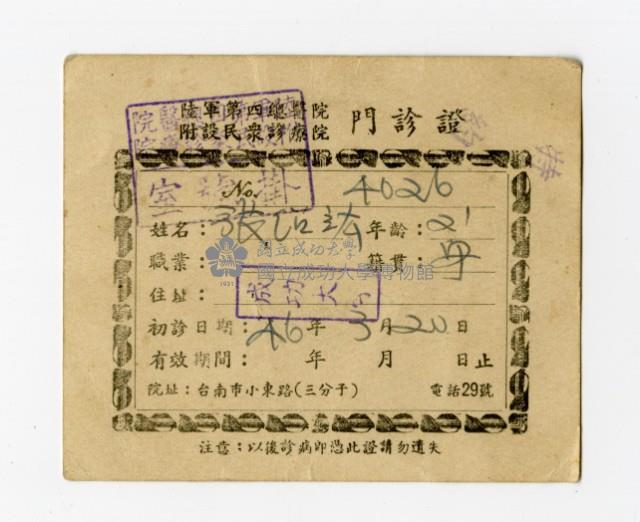 陸軍第四總醫院
附設民眾診療院
門診證
No. 4026
姓名：張 年齡：21
職業： 籍貫：
國立成功大學
國立成功大學博物館
1931
住址：
成功大
初診日期：46年3月20日
有效期間： 年 月 日止
院址：台南市小東路(三分子) 電話29號
注意：以後診病即憑此證請勿遺失